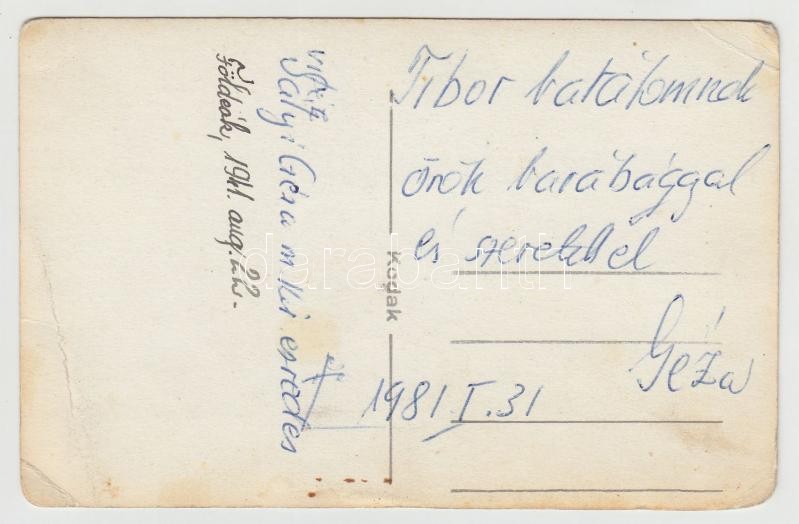 Tibor barátomnak
örök barátsággal
és szeretettel
Géza
1981 I. 31
Kodak
vitéz
Sályi Géza m. kir. ezredes
Földeák, 1941. aug.
darabanth